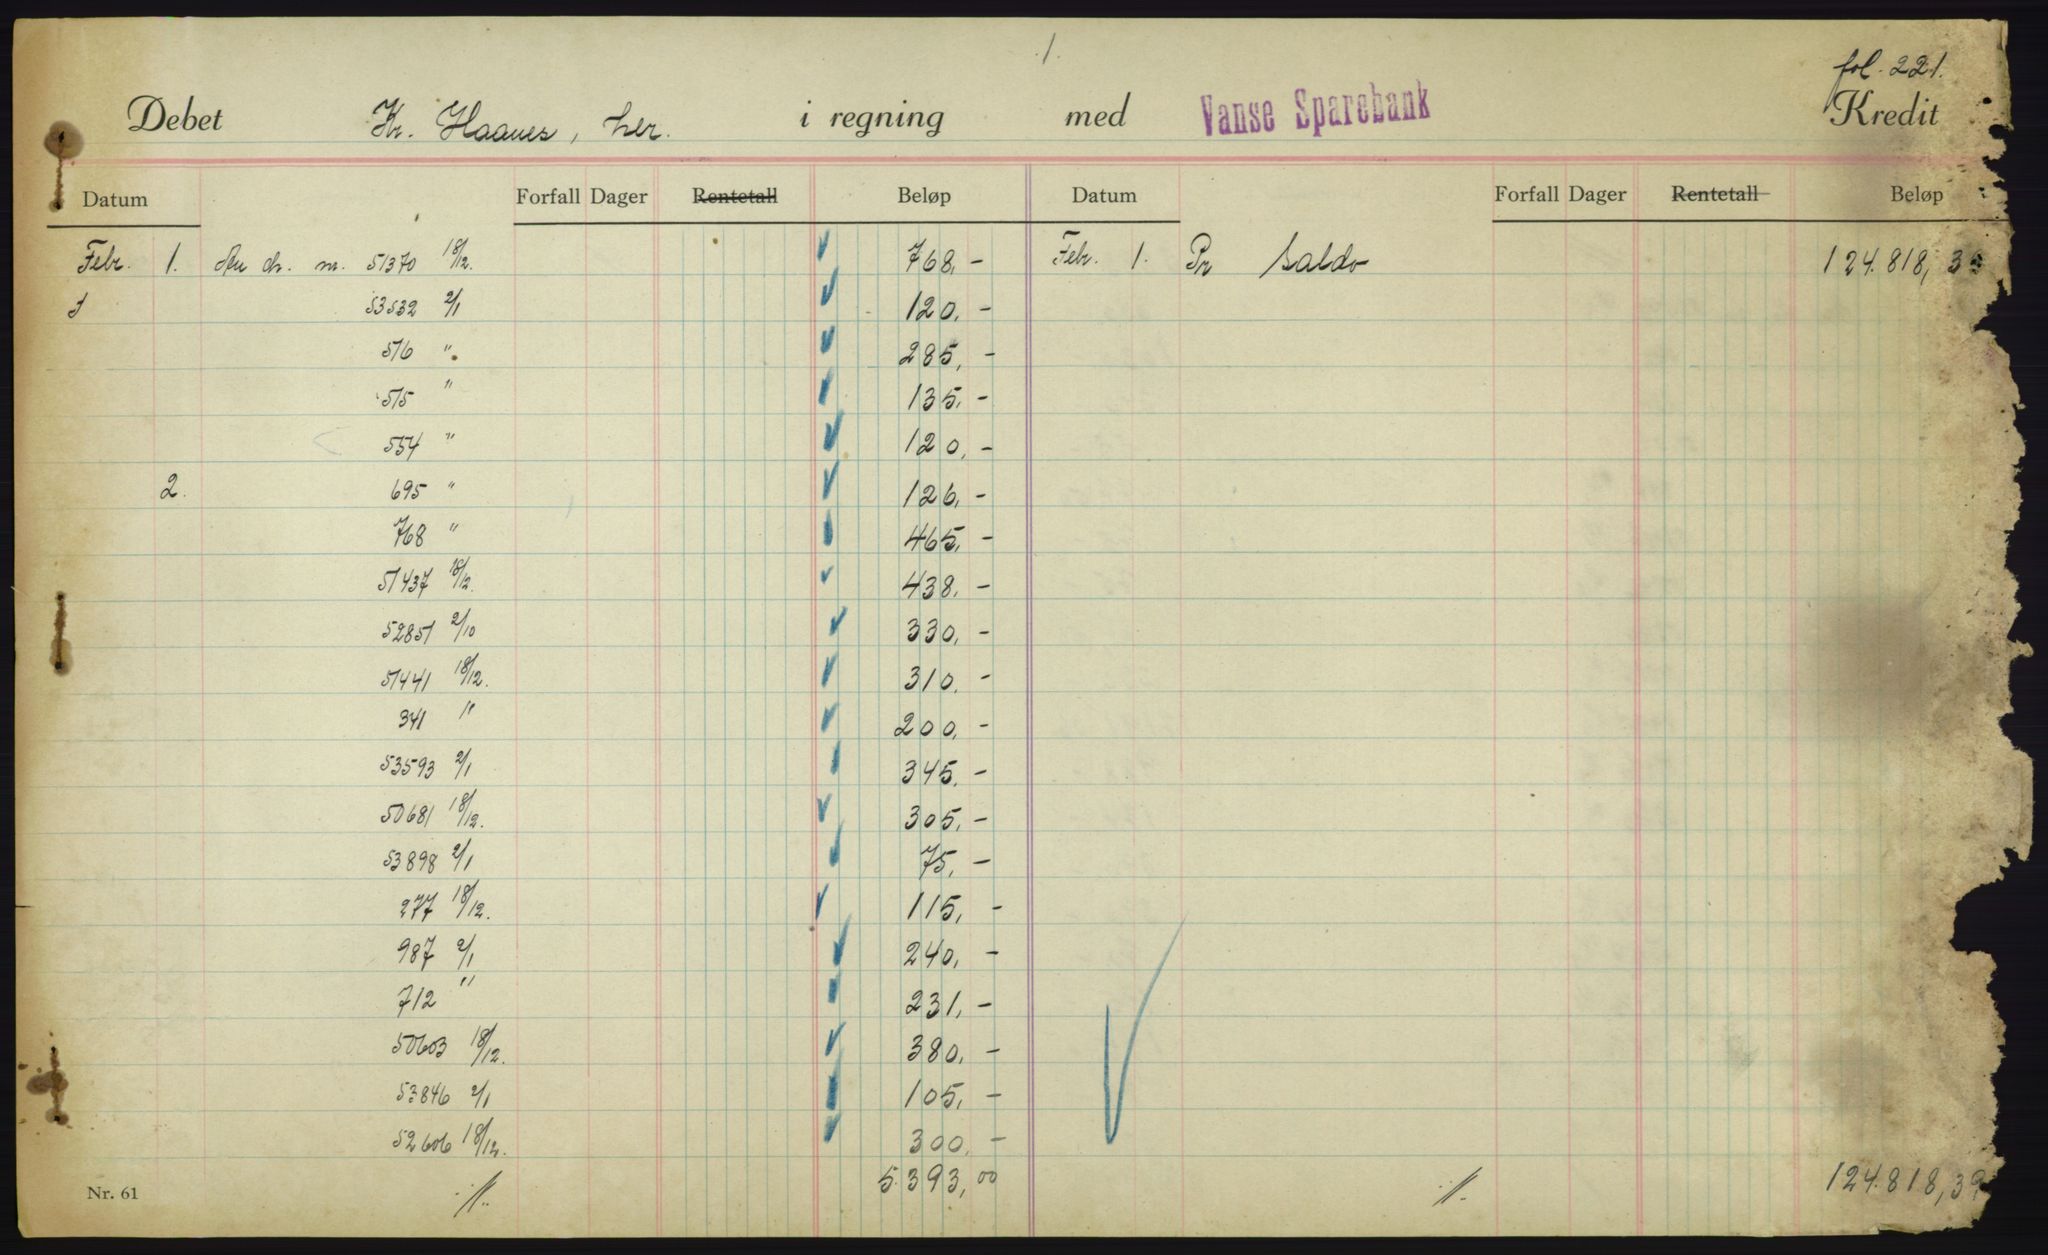 1.
fol. 221.
Debet Kr. Haanes, her. i regning med Vanse Sparebank Kredit
Datum Forfall Dager Rentetall Beløp Datum Forfall Dager Rentetall Beløp
Febr. 1. An ch. nr. 51370 18/12. 768,- Febr. 1. Pr saldo 124.818,39
53532 2/1 120,-
516 " 285,-
515 " 135,-
554 " 120,-
2. 695 " 126,-
768 " 465,-
51437 18/12. 438,-
52851 2/10 330,-
51441 18/12. 310,-
341 " 200,-
53593 2/1 345,-
50681 18/12. 305,-
53898 2/1 75,-
277 18/12. 115,-
987 2/1 240,-
712 " 231,-
50603 18/12. 380,-
53846 2/1 105,-
52606 18/12. 300,-
Nr. 61 ·/· 5.393,00 ·/· 124.818,39